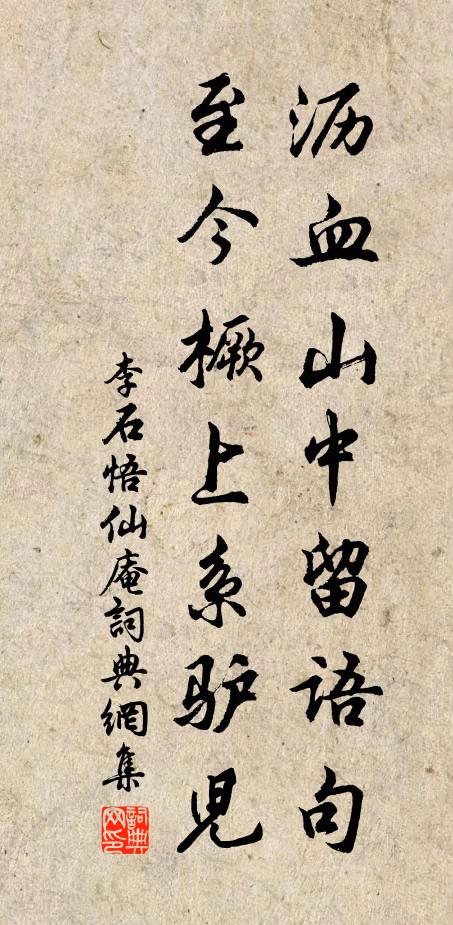 沥血山中留语句
至今橛上系驴児
李石悟仙庵詞典網集
詞典网印